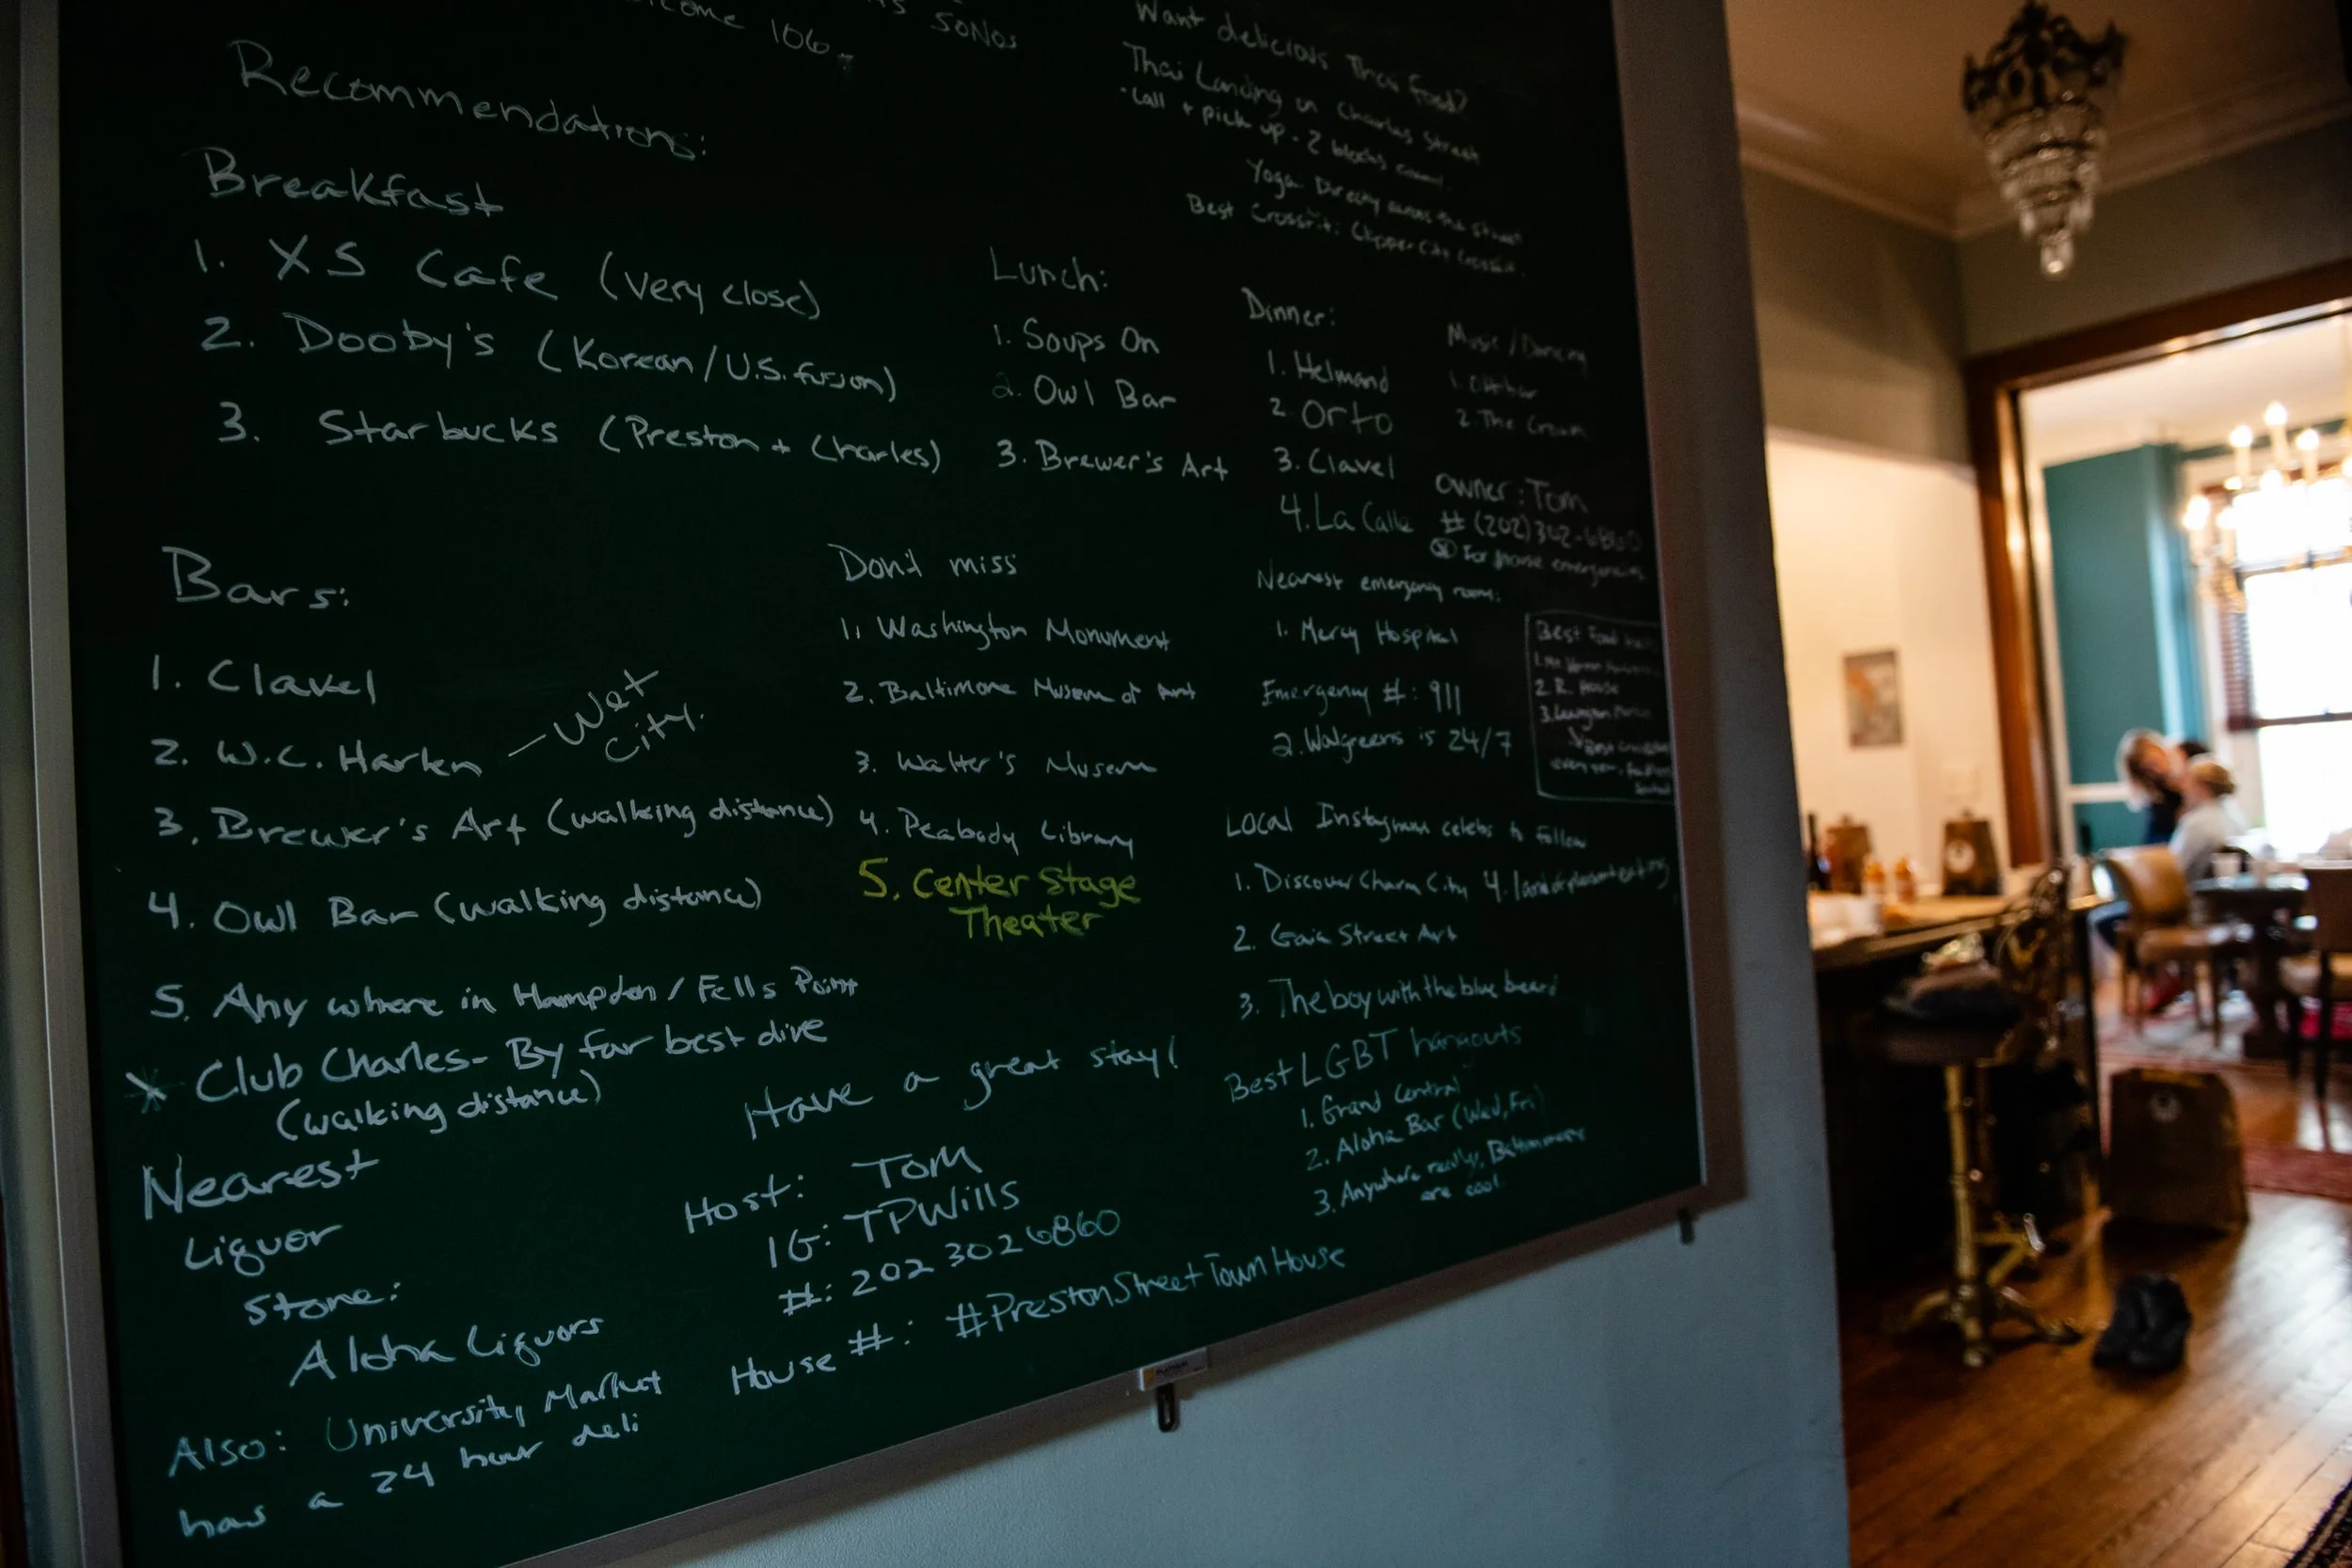 SONOS
106.
Recommendations:
Breakfast
1. XS Cafe (very close)
2. Dooby's (Korean/U.S. fusion)
3. Starbucks (Preston + Charles)
Want delicious Thai food?
Thai Landing on Charles Street
·Call + pick up - 2 blocks
Yoga Directly across the street
Best Crossfit: Clipper City Crossfit.
Lunch:
1. Soups On
2. Owl Bar
3. Brewer's Art
Dinner:
1. Helmand
2 Orto
3. Clavel
4. La Calle
Music/Dancing
1. Ottobar
2. The Crown
owner: Tom
# (202) 302-6860
for house emergencies
Bars:
1. Clavel
2. W.C. Harlan — Wet
City.
3. Brewer's Art (walking distance)
4. Owl Bar (walking distance)
5. Any where in Hampden/Fells Point
Club Charles- By far best dive
(walking distance)
Don't miss
1. Washington Monument
2. Baltimore Museum of Art
3. Walter's Museum
4. Peabody Library
5. Center Stage
Theater
Nearest emergency room:
1. Mercy Hospital
Emergency #: 911
2. Walgreens is 24/7
Best Food
2. R. House
3. Lexington
Local Instagram celebs to follow
1. Discover Charm City 4.
2. Gaia Street Art
3. Theboywiththebluebeard
Best LGBT hangouts
1. Grand Central
2. Aloha Bar (Wed, Fri)
3. Anywhere really,
are cool.
Nearest
Liquor
Store:
Aloha Liquors
Also: University Market
has a 24 hour deli
Have a great stay!
Host: Tom
IG: TPWills
#: 202 302 6860
House #: #PrestonStreetTownHouse